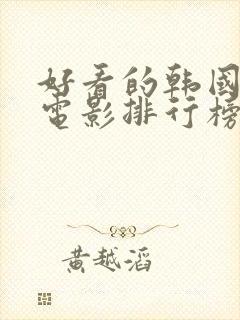 好看的韩国
电影排行榜
黄越滔